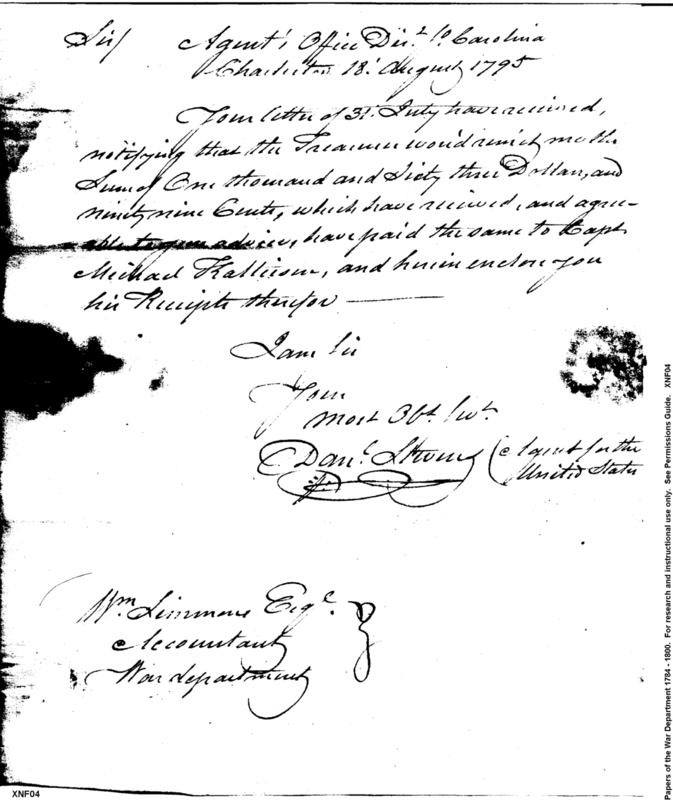 Sir/ Agent's Office Dist. So. Carolina
Charleston 18. August 1795
Your letter of 31. July have received,
notifying that the Treasurer wou'd remit me the
Sum of One thousand and Sixty three Dollars, and
ninety nine Cents, which have received, and agree-
able to your advice, have paid the same to Capt.
Michael Kalteisen, and herein enclose you
his Receipts therefor
I am Sir
Your
most Obt. Svt.
Danl. Stevens Agent for the
United States
Wm. Simmons Esqe.
Accountant
War department
XNF04
Papers of the War Department 1784 - 1800. For research and instructional use only. See Permissions Guide. XNF04